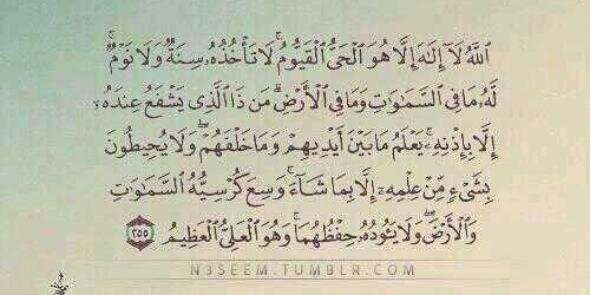 ٱللَّهُ لَآ إِلَٰهَ إِلَّا هُوَ ٱلْحَىُّ ٱلْقَيُّومُ ۚ لَا تَأْخُذُهُۥ سِنَةٌ وَلَا نَوْمٌ ۚ
لَّهُۥ مَا فِى ٱلسَّمَٰوَٰتِ وَمَا فِى ٱلْأَرْضِ ۗ مَن ذَا ٱلَّذِى يَشْفَعُ عِندَهُۥٓ
إِلَّا بِإِذْنِهِۦ ۚ يَعْلَمُ مَا بَيْنَ أَيْدِيهِمْ وَمَا خَلْفَهُمْ ۖ وَلَا يُحِيطُونَ
بِشَىْءٍ مِّنْ عِلْمِهِۦٓ إِلَّا بِمَا شَآءَ ۚ وَسِعَ كُرْسِيُّهُ ٱلسَّمَٰوَٰتِ
وَٱلْأَرْضَ ۖ وَلَا يَـُٔودُهُۥ حِفْظُهُمَا ۚ وَهُوَ ٱلْعَلِىُّ ٱلْعَظِيمُ ٢٥٥
N3SEEM.TUMBLR.COM